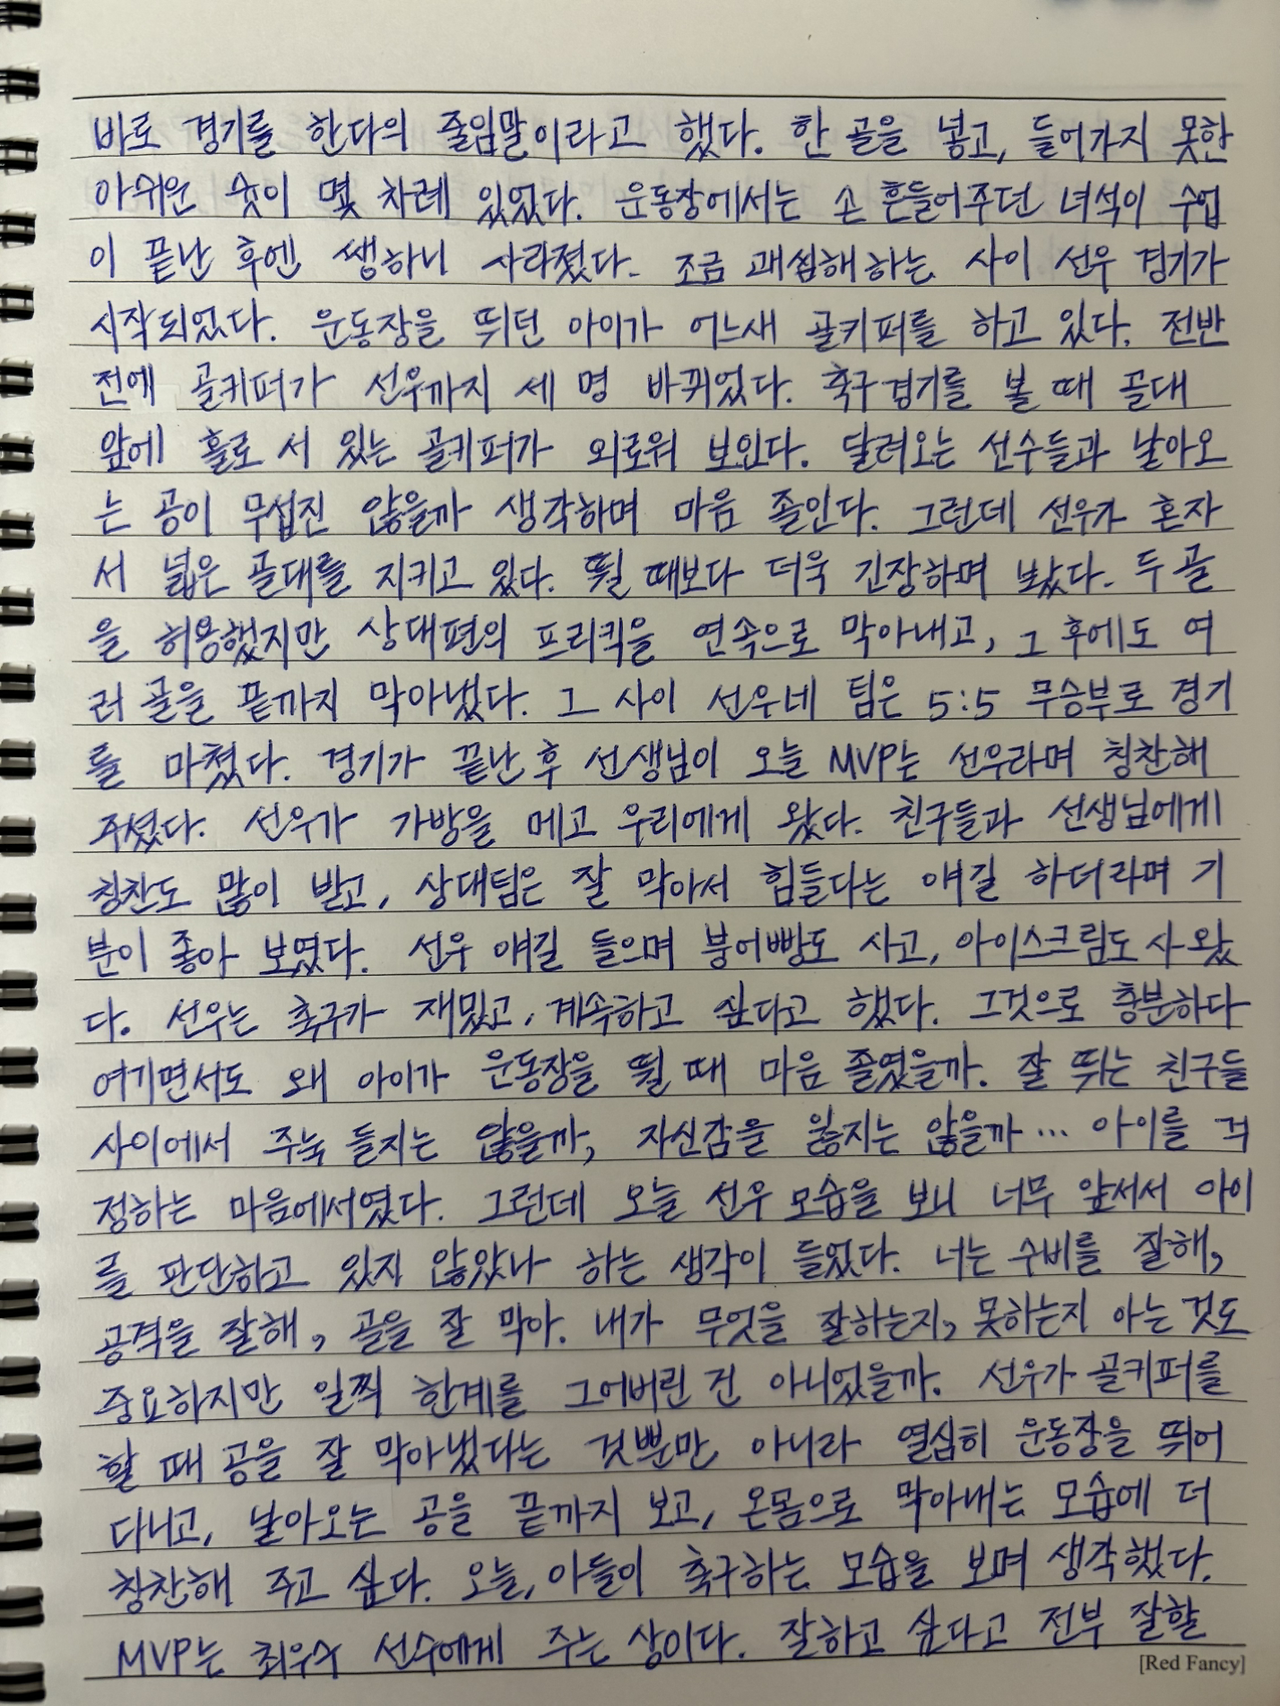 바로 경기를 한다의 줄임말이라고 했다. 한 골을 넣고, 들어가지 못한
아쉬운 슛이 몇 차례 있었다. 운동장에서는 손 흔들어주던 녀석이 수업
이 끝난 후엔 쌩하니 사라졌다. 조금 괘씸해하는 사이 선우 경기가
시작되었다. 운동장을 뛰던 아이가 어느새 골키퍼를 하고 있다. 전반
전에 골키퍼가 선우까지 세 명 바뀌었다. 축구경기를 볼 때 골대
앞에 홀로 서 있는 골키퍼가 외로워 보인다. 달려오는 선수들과 날아오
는 공이 무섭진 않을까 생각하며 마음 졸인다. 그런데 선우가 혼자
서 넓은 골대를 지키고 있다. 뛸 때보다 더욱 긴장하며 봤다. 두 골
을 허용했지만 상대편의 프리킥을 연속으로 막아내고, 그 후에도 여
러 골을 끝까지 막아냈다. 그 사이 선우네 팀은 5:5 무승부로 경기
를 마쳤다. 경기가 끝난 후 선생님이 오늘 MVP는 선우라며 칭찬해
주셨다. 선우가 가방을 메고 우리에게 왔다. 친구들과 선생님에게
칭찬도 많이 받고, 상대팀은 잘 막아서 힘들다는 얘길 하더라며 기
분이 좋아 보였다. 선우 얘길 들으며 붕어빵도 사고, 아이스크림도 사 왔
다. 선우는 축구가 재밌고, 계속하고 싶다고 했다. 그것으로 충분하다
여기면서도 왜 아이가 운동장을 뛸 때 마음 졸였을까. 잘 뛰는 친구들
사이에서 주눅 들지는 않을까, 자신감을 잃지는 않을까… 아이를 걱
정하는 마음에서였다. 그런데 오늘 선우 모습을 보니 너무 앞서서 아이
를 판단하고 있지 않았나 하는 생각이 들었다. 너는 수비를 잘해,
공격을 잘해, 골을 잘 막아. 내가 무엇을 잘하는지, 못하는지 아는 것도
중요하지만 일찍 한계를 그어버린 건 아니었을까. 선우가 골키퍼를
할 때 공을 잘 막아냈다는 것뿐만 아니라 열심히 운동장을 뛰어
다니고, 날아오는 공을 끝까지 보고, 온몸으로 막아내는 모습에 더
칭찬해 주고 싶다. 오늘, 아들이 축구하는 모습을 보며 생각했다.
MVP는 최우수 선수에게 주는 상이다. 잘하고 싶다고 전부 잘할
[Red Fancy]